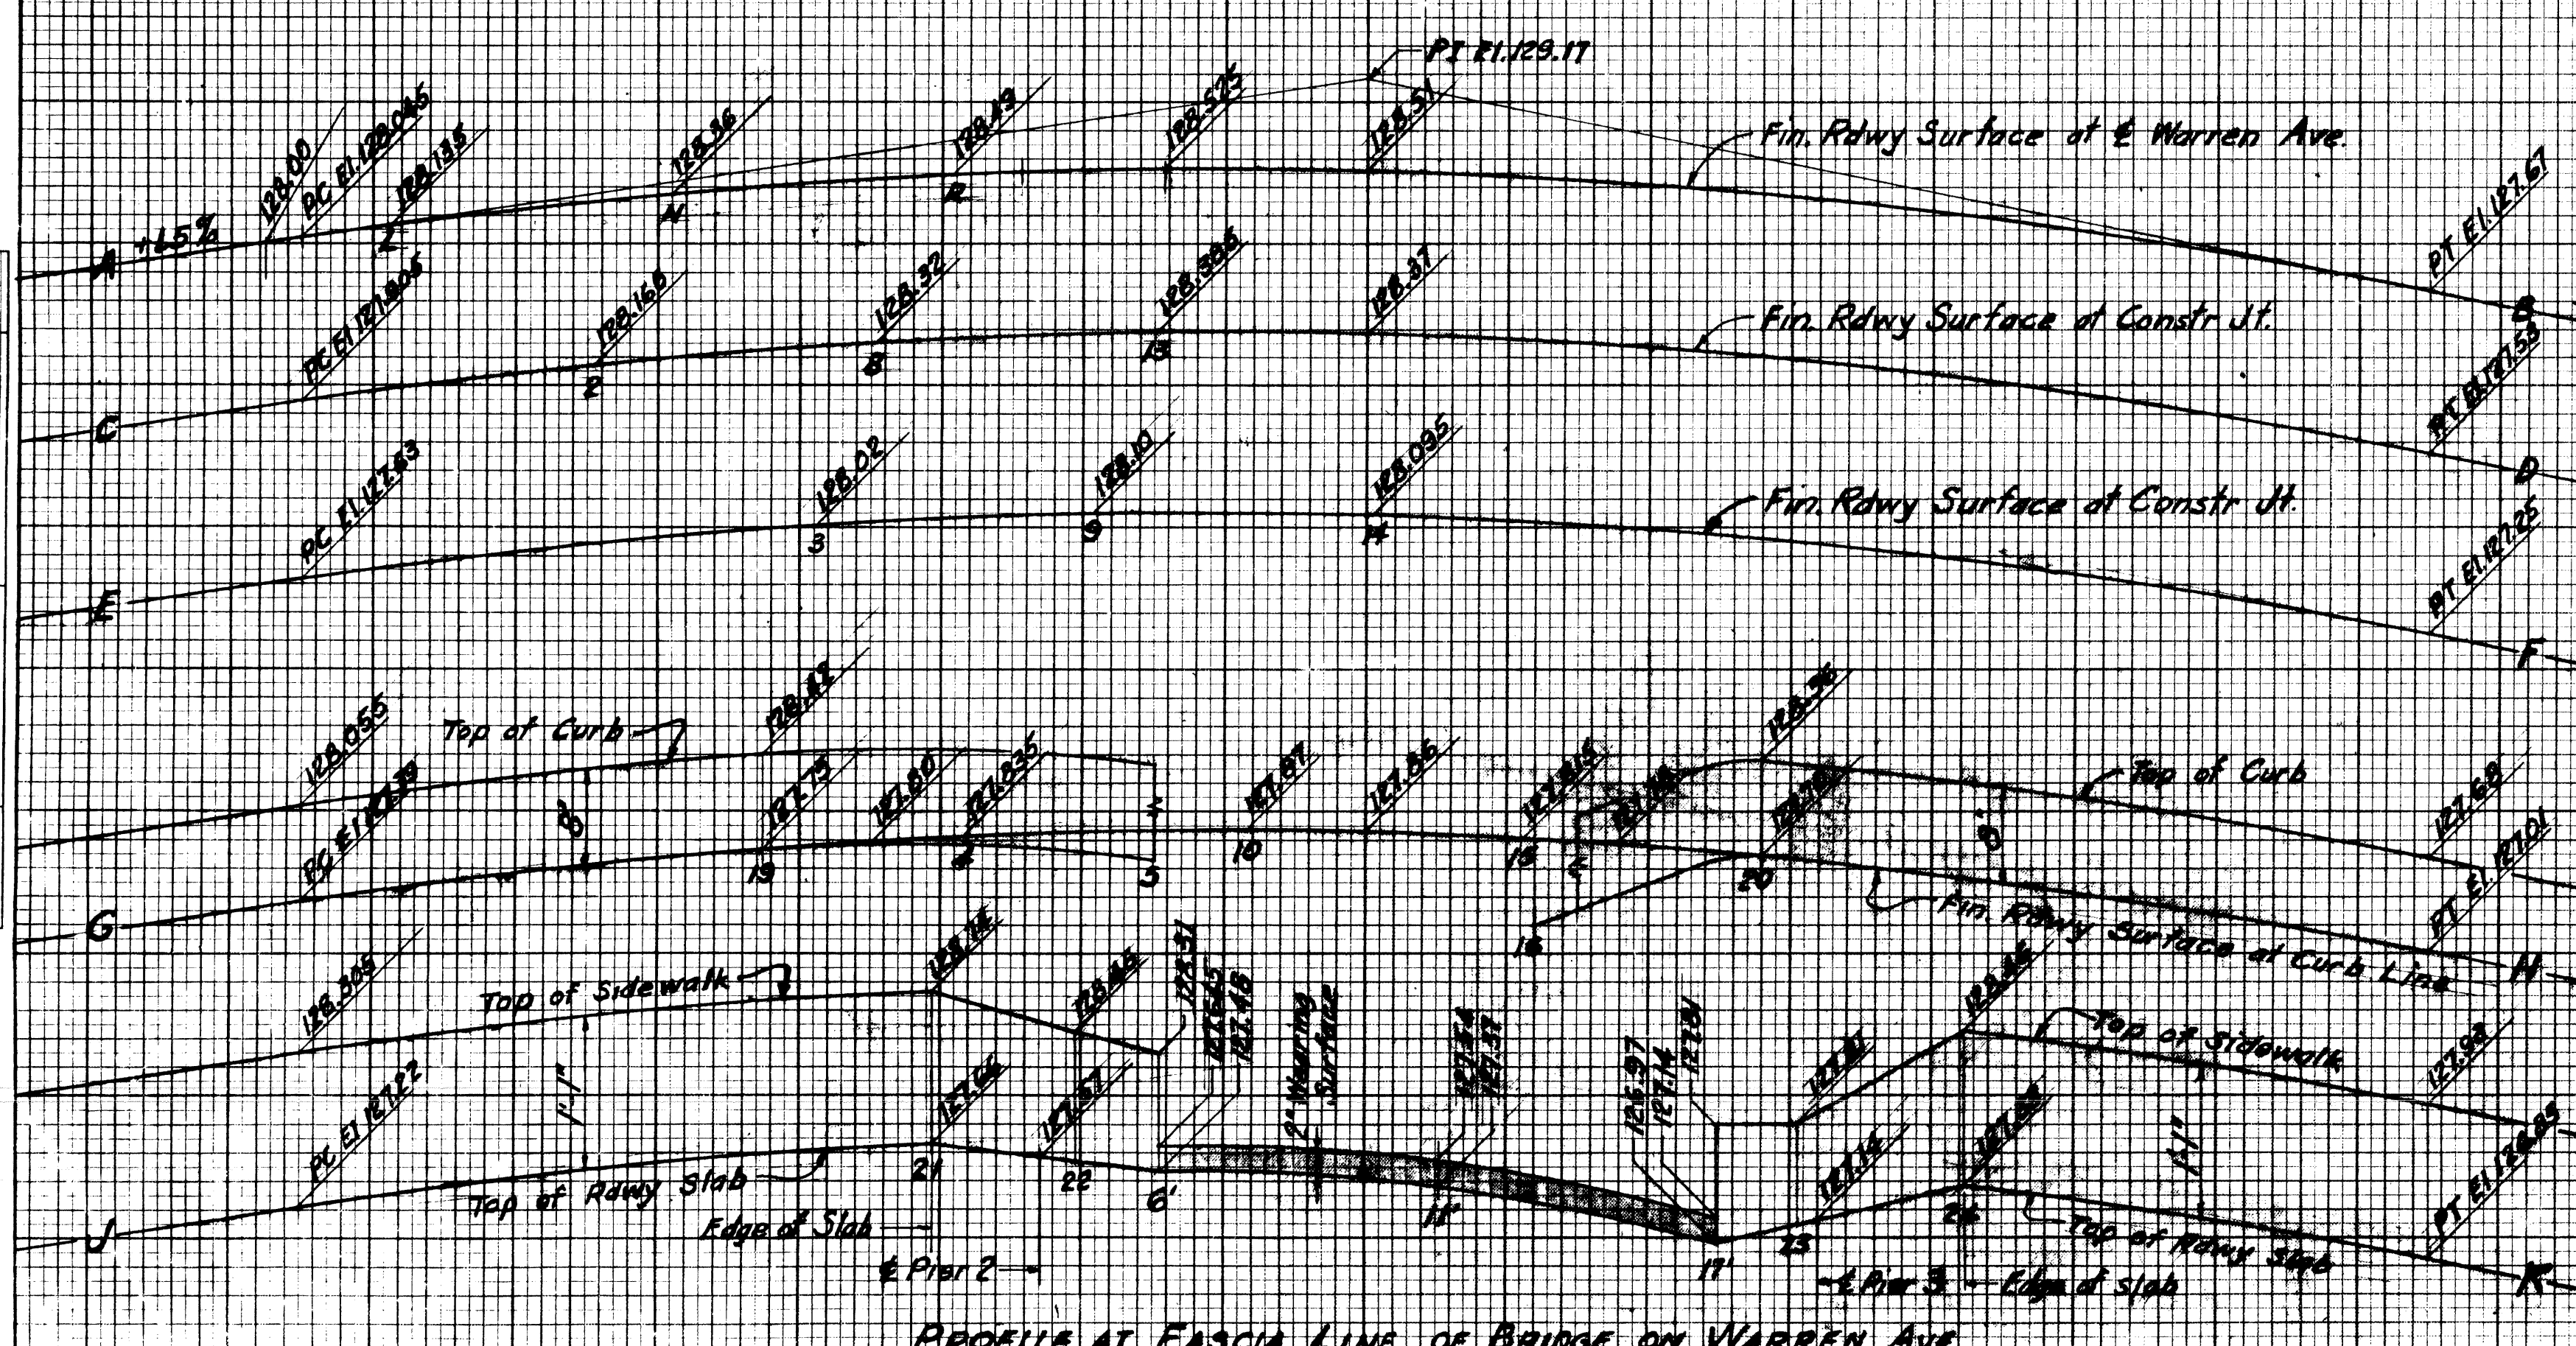 PI El. 129.17
128.00
PC El. 128.045
128.135
128.36
128.49
128.525
128.51
Fin. Rdwy Surface at ℄ Warren Ave.
PT El. 127.67
A +1.5%
L
N
R
B
PC El. 127.905
128.166
128.32
128.385
128.37
Fin. Rdwy Surface at Constr Jt.
PT El. 127.53
C
2
8
13
D
PC El. 127.63
128.02
128.10
128.095
Fin. Rdwy Surface at Constr Jt.
PT El. 127.25
E
3
9
14
F
128.055
Top of Curb
128.42
128.36
Top of Curb
127.68
PC El. 127.39
8"
127.75
127.80
127.835
127.87
127.86
127.815
8"
PT El. 127.01
G
19
4
5
10
15
20
16
Fin. Rdwy Surface at Curb Line
H
128.305
Top of Sidewalk
128.74
128.46
128.31
127.645
127.48
2" Wearing
Surface
127.54
127.37
126.97
127.14
127.81
Top of Sidewalk
127.93
PC El 127.22
1'-1"
127.66
127.57
127.14
1'-1"
PT El. 126.85
J
Top of Rdwy Slab
21
22
6'
11'
17'
23
24
Top of Rdwy Slab
K
Edge of Slab
℄ Pier 2
℄ Pier 3
Edge of slab
PROFILE AT FASCIA LINE OF BRIDGE ON WARREN AVE